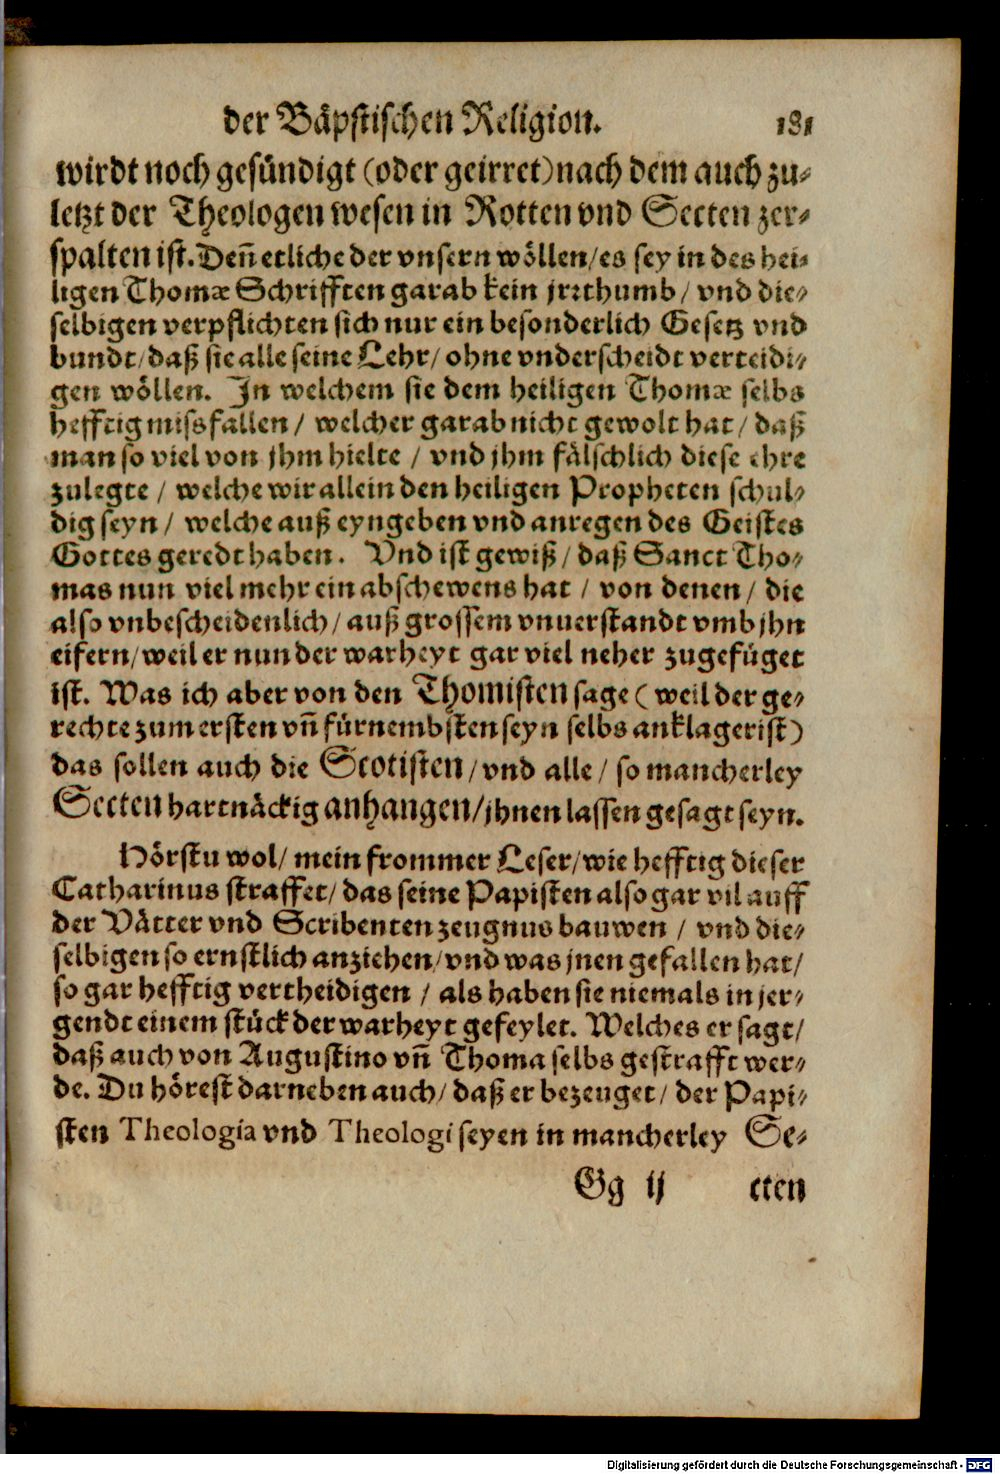 der Bäpstischen Religion. 181
wirdt noch gesündigt (oder geirret) nach dem auch zu-
letzt der Theologen wesen in Rotten vnd Secten zer-
spalten ist. Deñ etliche der vnsern wöllen / es sey in des hei-
ligen Thomæ Schrifften garab kein jrrthumb / vnd die-
selbigen verpflichten sich nur ein besonderlich Gesetz vnd
bundt / daß sie alle seine Lehr / ohne vnderscheidt verteidi-
gen wöllen. In welchem sie dem heiligen Thomæ selbs
hefftig missfallen / welcher garab nicht gewolt hat / daß
man so viel von jhm hielte / vnd jhm fälschlich diese ehre
zulegte / welche wir allein den heiligen Propheten schul-
dig seyn / welche auß eyngeben vnd anregen des Geistes
Gottes geredt haben. Vnd ist gewiß / daß Sanct Tho-
mas nun viel mehr ein abschewens hat / von denen / die
also vnbescheidenlich / auß grossem vnuerstandt vmb jhn
eifern / weil er nun der warheyt gar viel neher zugefüget
ist. Was ich aber von den Thomisten sage (weil der ge-
rechte zum ersten vñ fürnembsten seyn selbs anklager ist)
das sollen auch die Scotisten / vnd alle / so mancherley
Secten hartnäckig anhangen / jhnen lassen gesagt seyn.
Hörstu wol / mein frommer Leser / wie hefftig dieser
Catharinus straffet / das seine Papisten also gar vil auff
der Vätter vnd Scribenten zeugnus bauwen / vnd die-
selbigen so ernstlich anziehen / vnd was jnen gefallen hat /
so gar hefftig vertheidigen / als haben sie niemals in jer-
gendt einem stück der warheyt gefeylet. Welches er sagt /
daß auch von Augustino vñ Thoma selbs gestrafft wer-
de. Du hörest darneben auch / daß er bezeuget / der Papi-
sten Theologia vnd Theologi seyen in mancherley Se-
Gg ij cten
Digitalisierung gefördert durch die Deutsche Forschungsgemeinschaft - DFG